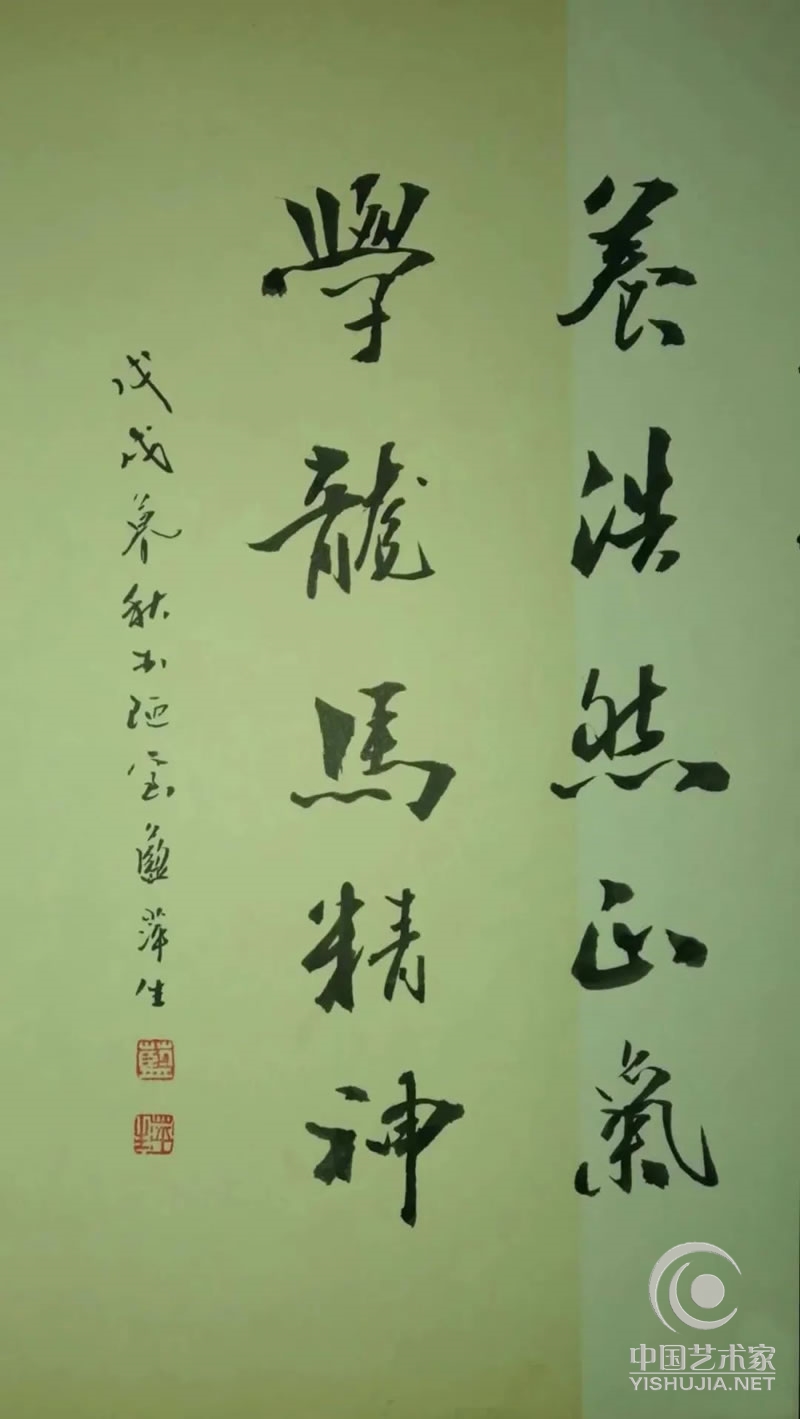 養浩然正氣
學龍馬精神
戊戌暮秋於陋室藍萍生
藍
中国艺术家
YISHUJIA.NET